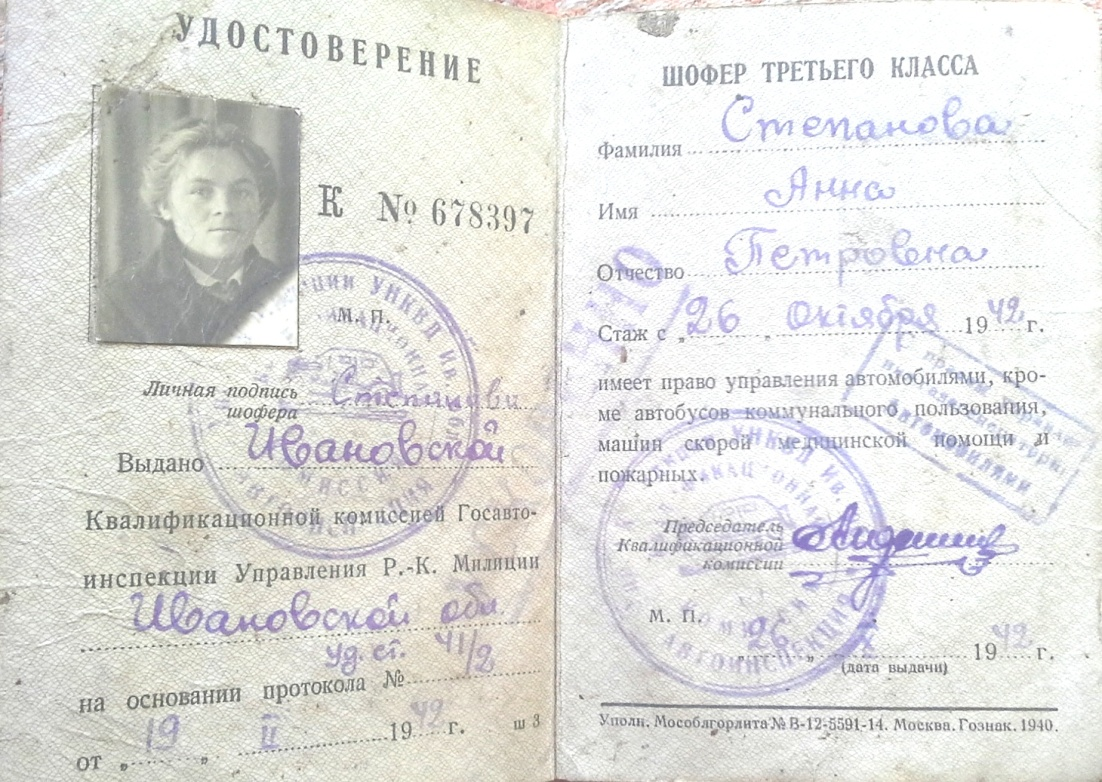 УДОСТОВЕРЕНИЕ
К № 678397
М. П.
Личная подпись
шофера Степанова
Выдано Ивановской
Квалификационной комиссией Госавто-
инспекции Управления Р.-К. Милиции
Ивановской обл
уд. ст. 41/2
на основании протокола №
от „ 19 „ II 1942 г. ш 3
ШОФЕР ТРЕТЬЕГО КЛАССА
Фамилия Степанова
Имя Анна
Отчество Петровна
Стаж с „ 26 „ Октября 1942 г.
имеет право управления автомобилями, кро-
ме автобусов коммунального пользования,
машин скорой медицинской помощи и
пожарных.
Председатель
Квалификационной
комиссии
М. П.
„ 26 „ 1942 г.
(дата выдачи)
Уполн. Мособлгорлита № В-12-5591-14. Москва. Гознак. 1940.
УНКВД ИВ.
АВТОИНСПЕКЦИЯ
АВТОМОБИЛЯМИ